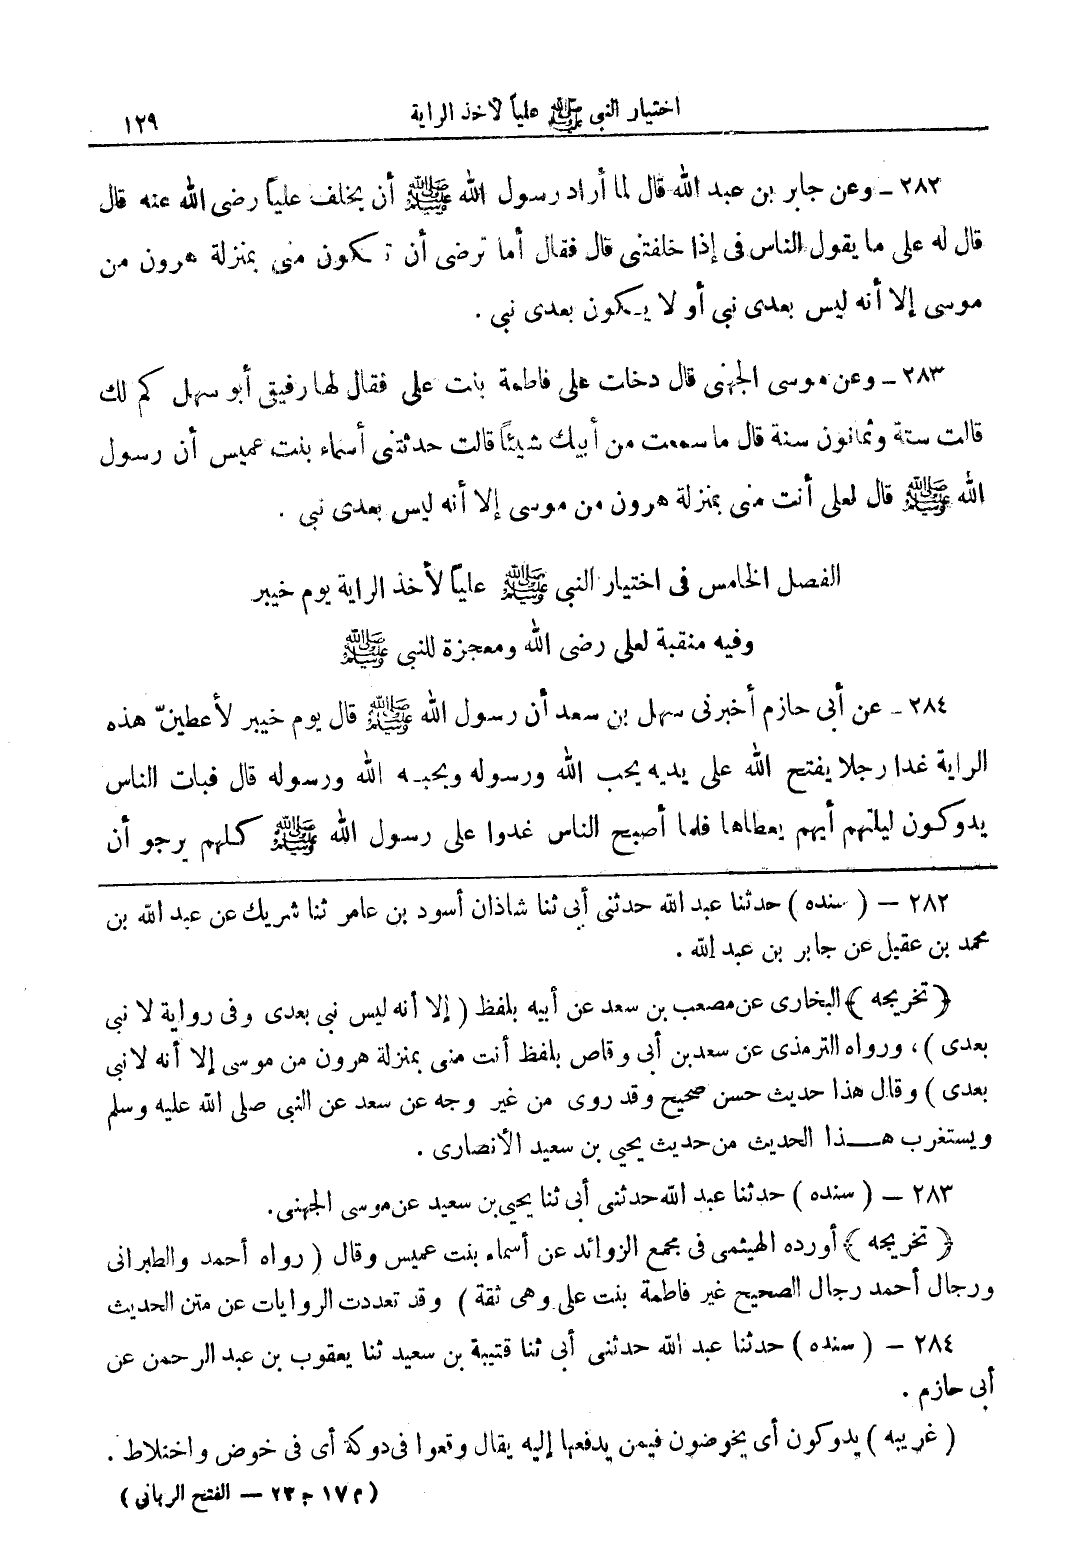 اختيار النبى ﷺ علياً لأخذ الراية ١٢٩
٢٨٢ ــ وعن جابر بن عبد الله قال لما أراد رسول الله ﷺ أن يخلف علياً رضى الله عنه قال
قال له على ما يقول الناس فى إذا خلفتنى قال فقال أما ترضى أن تكون منى بمنزلة هرون من
موسى إلا أنه ليس بعدى نبى أو لا يكون بعدى نبى .
٢٨٣ ــ وعن موسى الجهنى قال دخلت على فاطمة بنت على فقال لها رفيقى أبو سهل كم لك
قالت ستة وثمانون سنة قال ما سمعت من أبيك شيئاً قالت حدثتنى أسماء بنت عميس أن رسول
الله ﷺ قال لعلى أنت منى بمنزلة هرون من موسى إلا أنه ليس بعدى نبى .
الفصل الخامس فى اختيار النبى ﷺ علياً لأخذ الراية يوم خيبر
وفيه منقبة لعلى رضى الله ومعجزة للنبى ﷺ
٢٨٤ ــ عن أبى حازم أخبرنى سهل بن سعد أن رسول الله ﷺ قال يوم خيبر لأعطينّ هذه
الراية غدا رجلا يفتح الله على يديه يحب الله ورسوله ويحبه الله ورسوله قال فبات الناس
يدوكون ليلتهم أيهم يعطاها فلما أصبح الناس غدوا على رسول الله ﷺ كلهم يرجو أن
٢٨٢ — ( سنده ) حدثنا عبد الله حدثنى أبى ثنا شاذان أسود بن عامر ثنا شريك عن عبد الله بن
محمد بن عقيل عن جابر بن عبد الله .
﴿ تخريجه ﴾ البخارى عن مصعب بن سعد عن أبيه بلفظ ( إلا أنه ليس نبى بعدى وفى رواية لا نبى
بعدى ) ، ورواه الترمذى عن سعد بن أبى وقاص بلفظ أنت منى بمنزلة هرون من موسى إلا أنه لا نبى
بعدى ) وقال هذا حديث حسن صحيح وقد روى من غير وجه عن سعد عن النبى صلى الله عليه وسلم
ويستغرب هـــذا الحديث من حديث يحيى بن سعيد الأنصارى .
٢٨٣ — ( سنده ) حدثنا عبد الله حدثنى أبى ثنا يحيى بن سعيد عن موسى الجهنى .
﴿ تخريجه ﴾ أورده الهيثمى فى مجمع الزوائد عن أسماء بنت عميس وقال ( رواه أحمد والطبرانى
ورجال أحمد رجال الصحيح غير فاطمة بنت على وهى ثقة ) وقد تعددت الروايات عن متن الحديث
٢٨٤ — ( سنده ) حدثنا عبد الله حدثنى أبى ثنا قتيبة بن سعيد ثنا يعقوب بن عبد الرحمن عن
أبى حازم .
( غريبه ) يدوكون أى يخوضون فيمن يدفعها إليه يقال وقعوا فى دوكة أى فى خوض واختلاط .
( م ١٧ ج ٢٣ — الفتح الربانى )